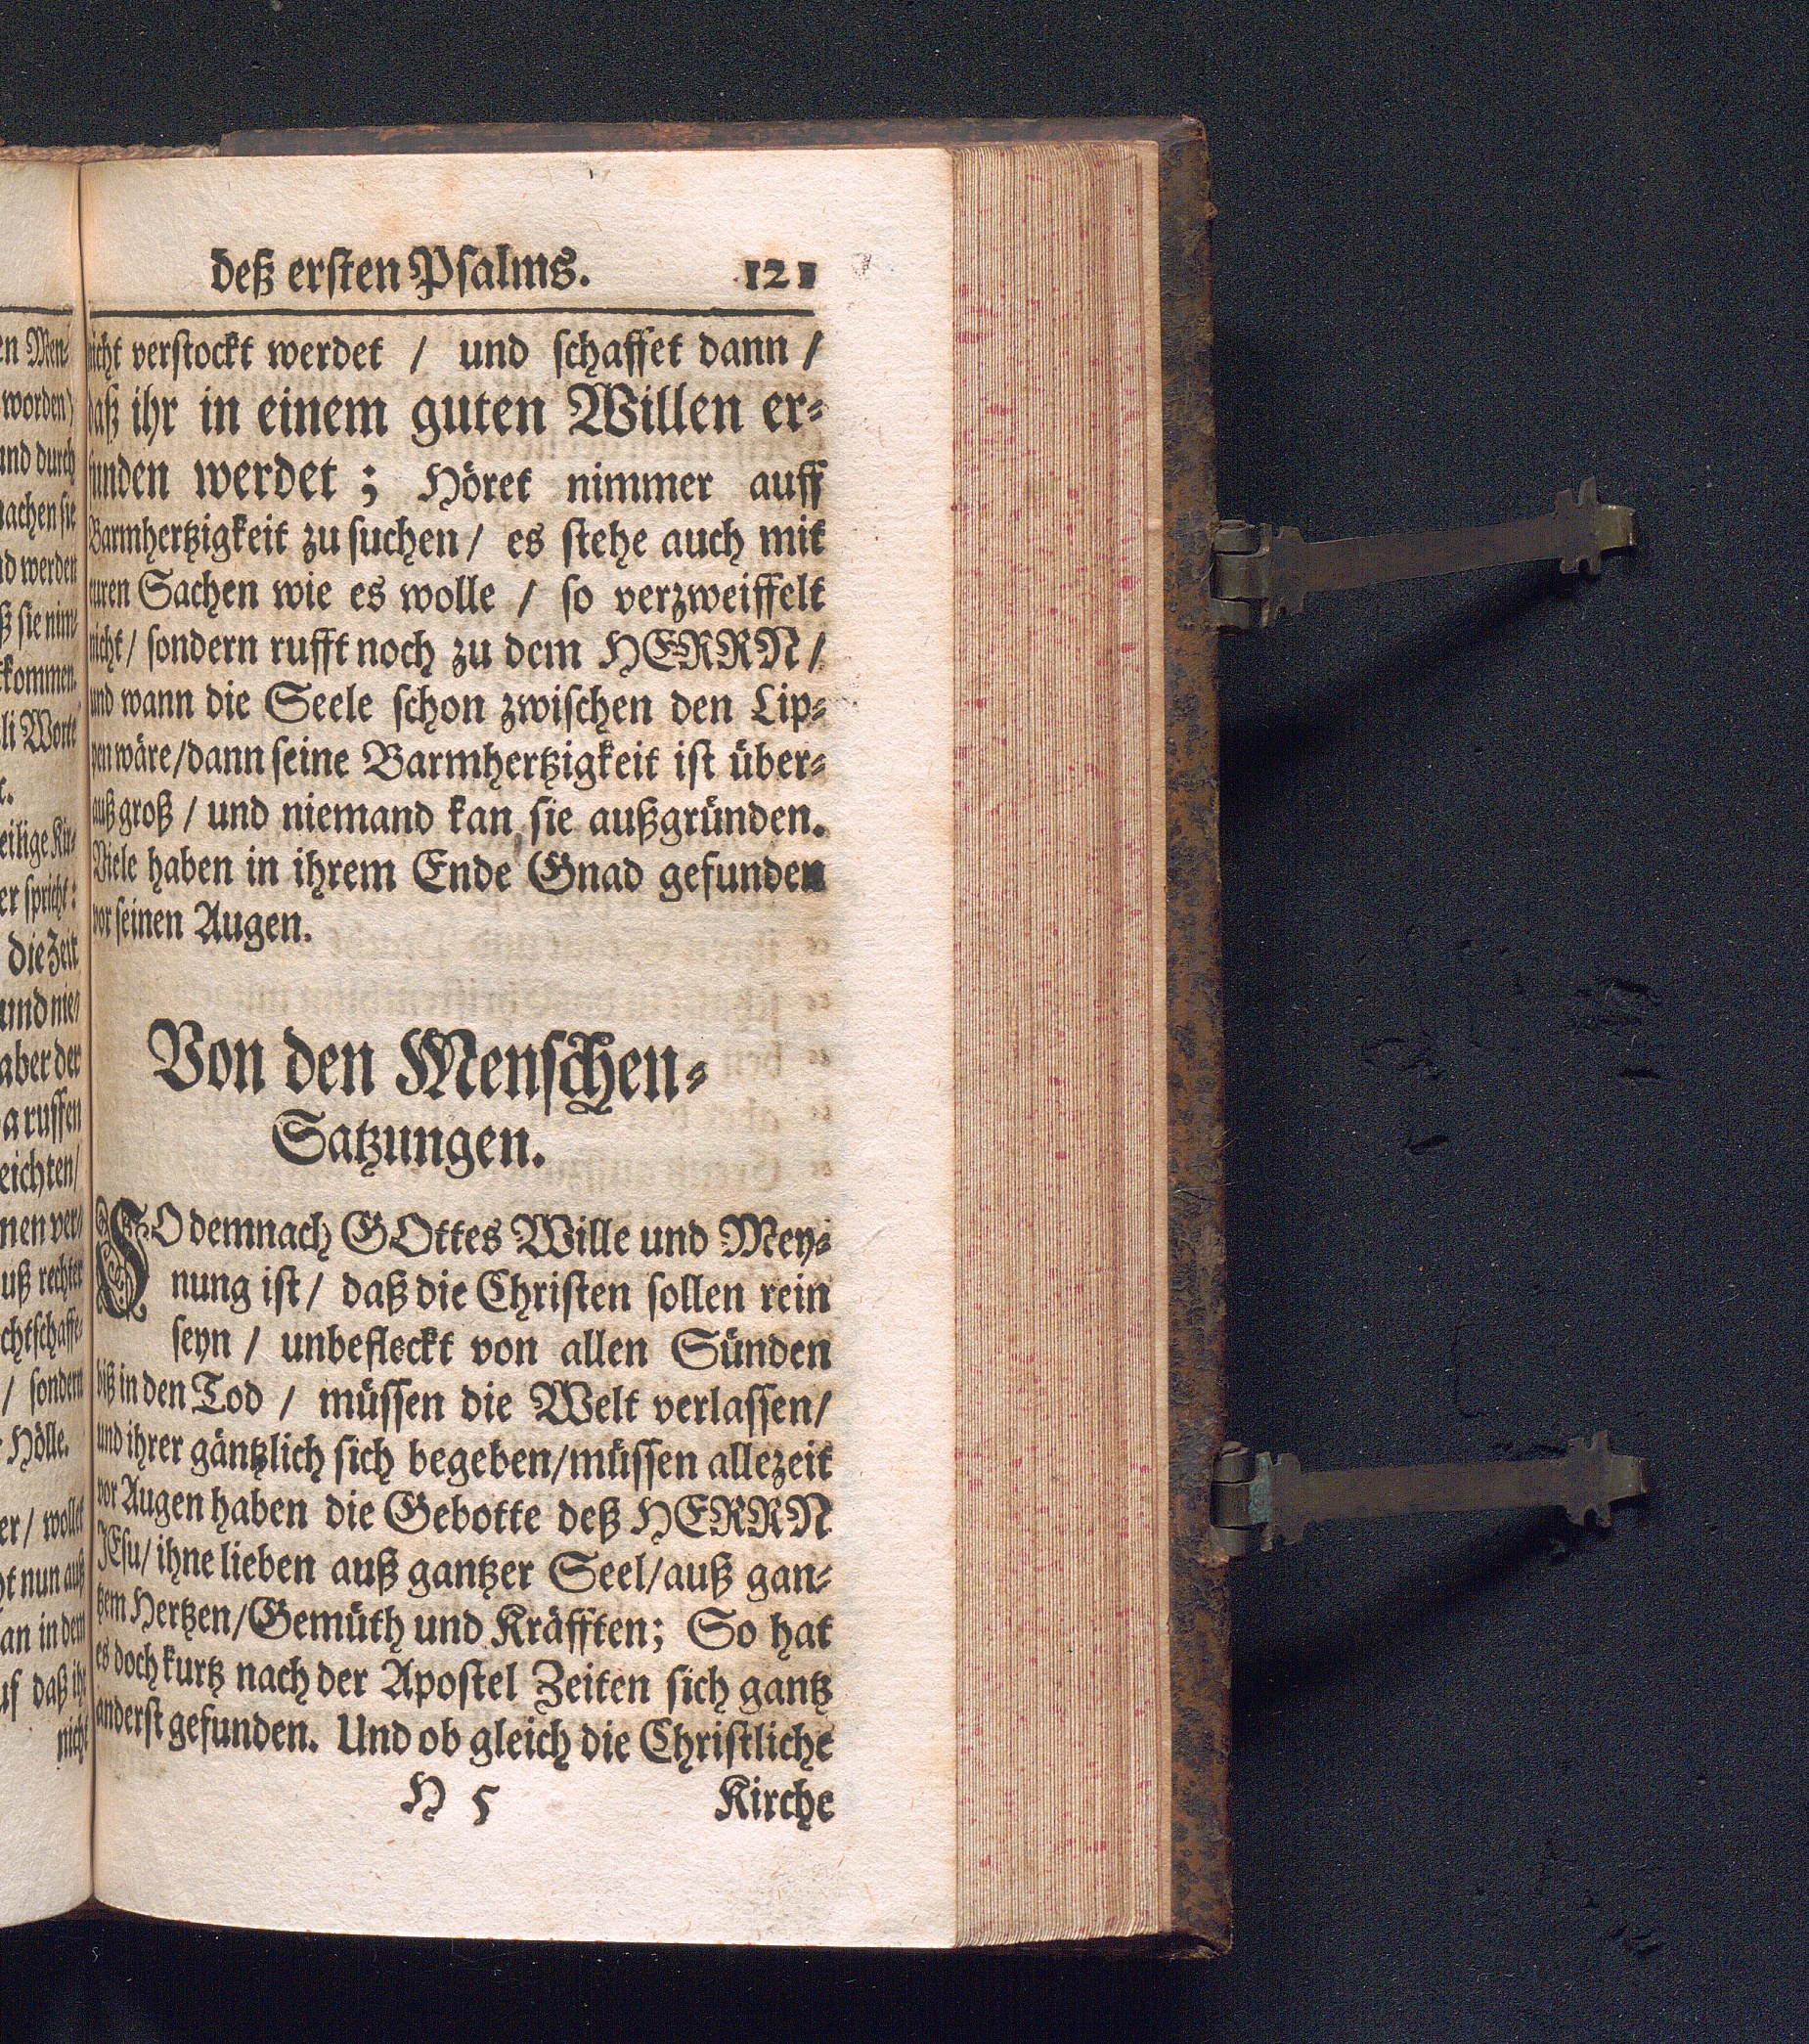 deß ersten Psalms. 121
nicht verstockt werdet / und schaffet dann /
daß ihr in einem guten Willen er-
funden werdet ; Höret nimmer auff
Barmhertzigkeit zu suchen / es stehe auch mit
euren Sachen wie es wolle / so verzweiffelt
nicht / sondern rufft noch zu dem HERRN /
und wann die Seele schon zwischen den Lip-
pen wäre / dann seine Barmhertzigkeit ist über-
auß groß / und niemand kan sie außgründen.
Viele haben in ihrem Ende Gnad gefunden
vor seinen Augen.
Von den Menschen-
Satzungen.
SO demnach GOttes Wille und Mey-
nung ist / daß die Christen sollen rein
seyn / unbefleckt von allen Sünden
biß in den Tod / müssen die Welt verlassen /
und ihrer gäntzlich sich begeben / müssen allezeit
vor Augen haben die Gebotte deß HERRN
JEsu / ihne lieben auß gantzer Seel / auß gan-
tzem Hertzen / Gemüth und Kräfften; So hat
es doch kurtz nach der Apostel Zeiten sich gantz
anderst gefunden. Und ob gleich die Christliche
H 5 Kirche